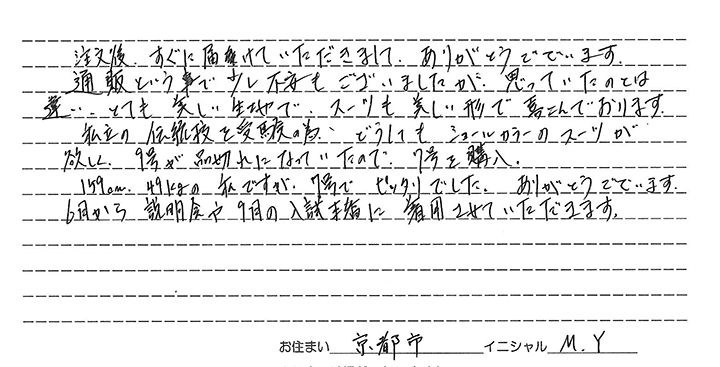 注文後、すぐに届けていただきまして、ありがとうございます。
通販という事で少し不安もございましたが、思っていたのとは
違い、とても美しい生地で、スーツも美しい形で喜こんでおります。
私立の伝統校を受験の為、どうしてもショールカラーのスーツが
欲しく、9号が品切れになっていたので 7号を購入。
159cm、49kgの私ですが、7号でピッタリでした。ありがとうございます。
6月から説明会や9月の入試本番に着用させていただきます。
お住まい 京都市 イニシャル M.Y